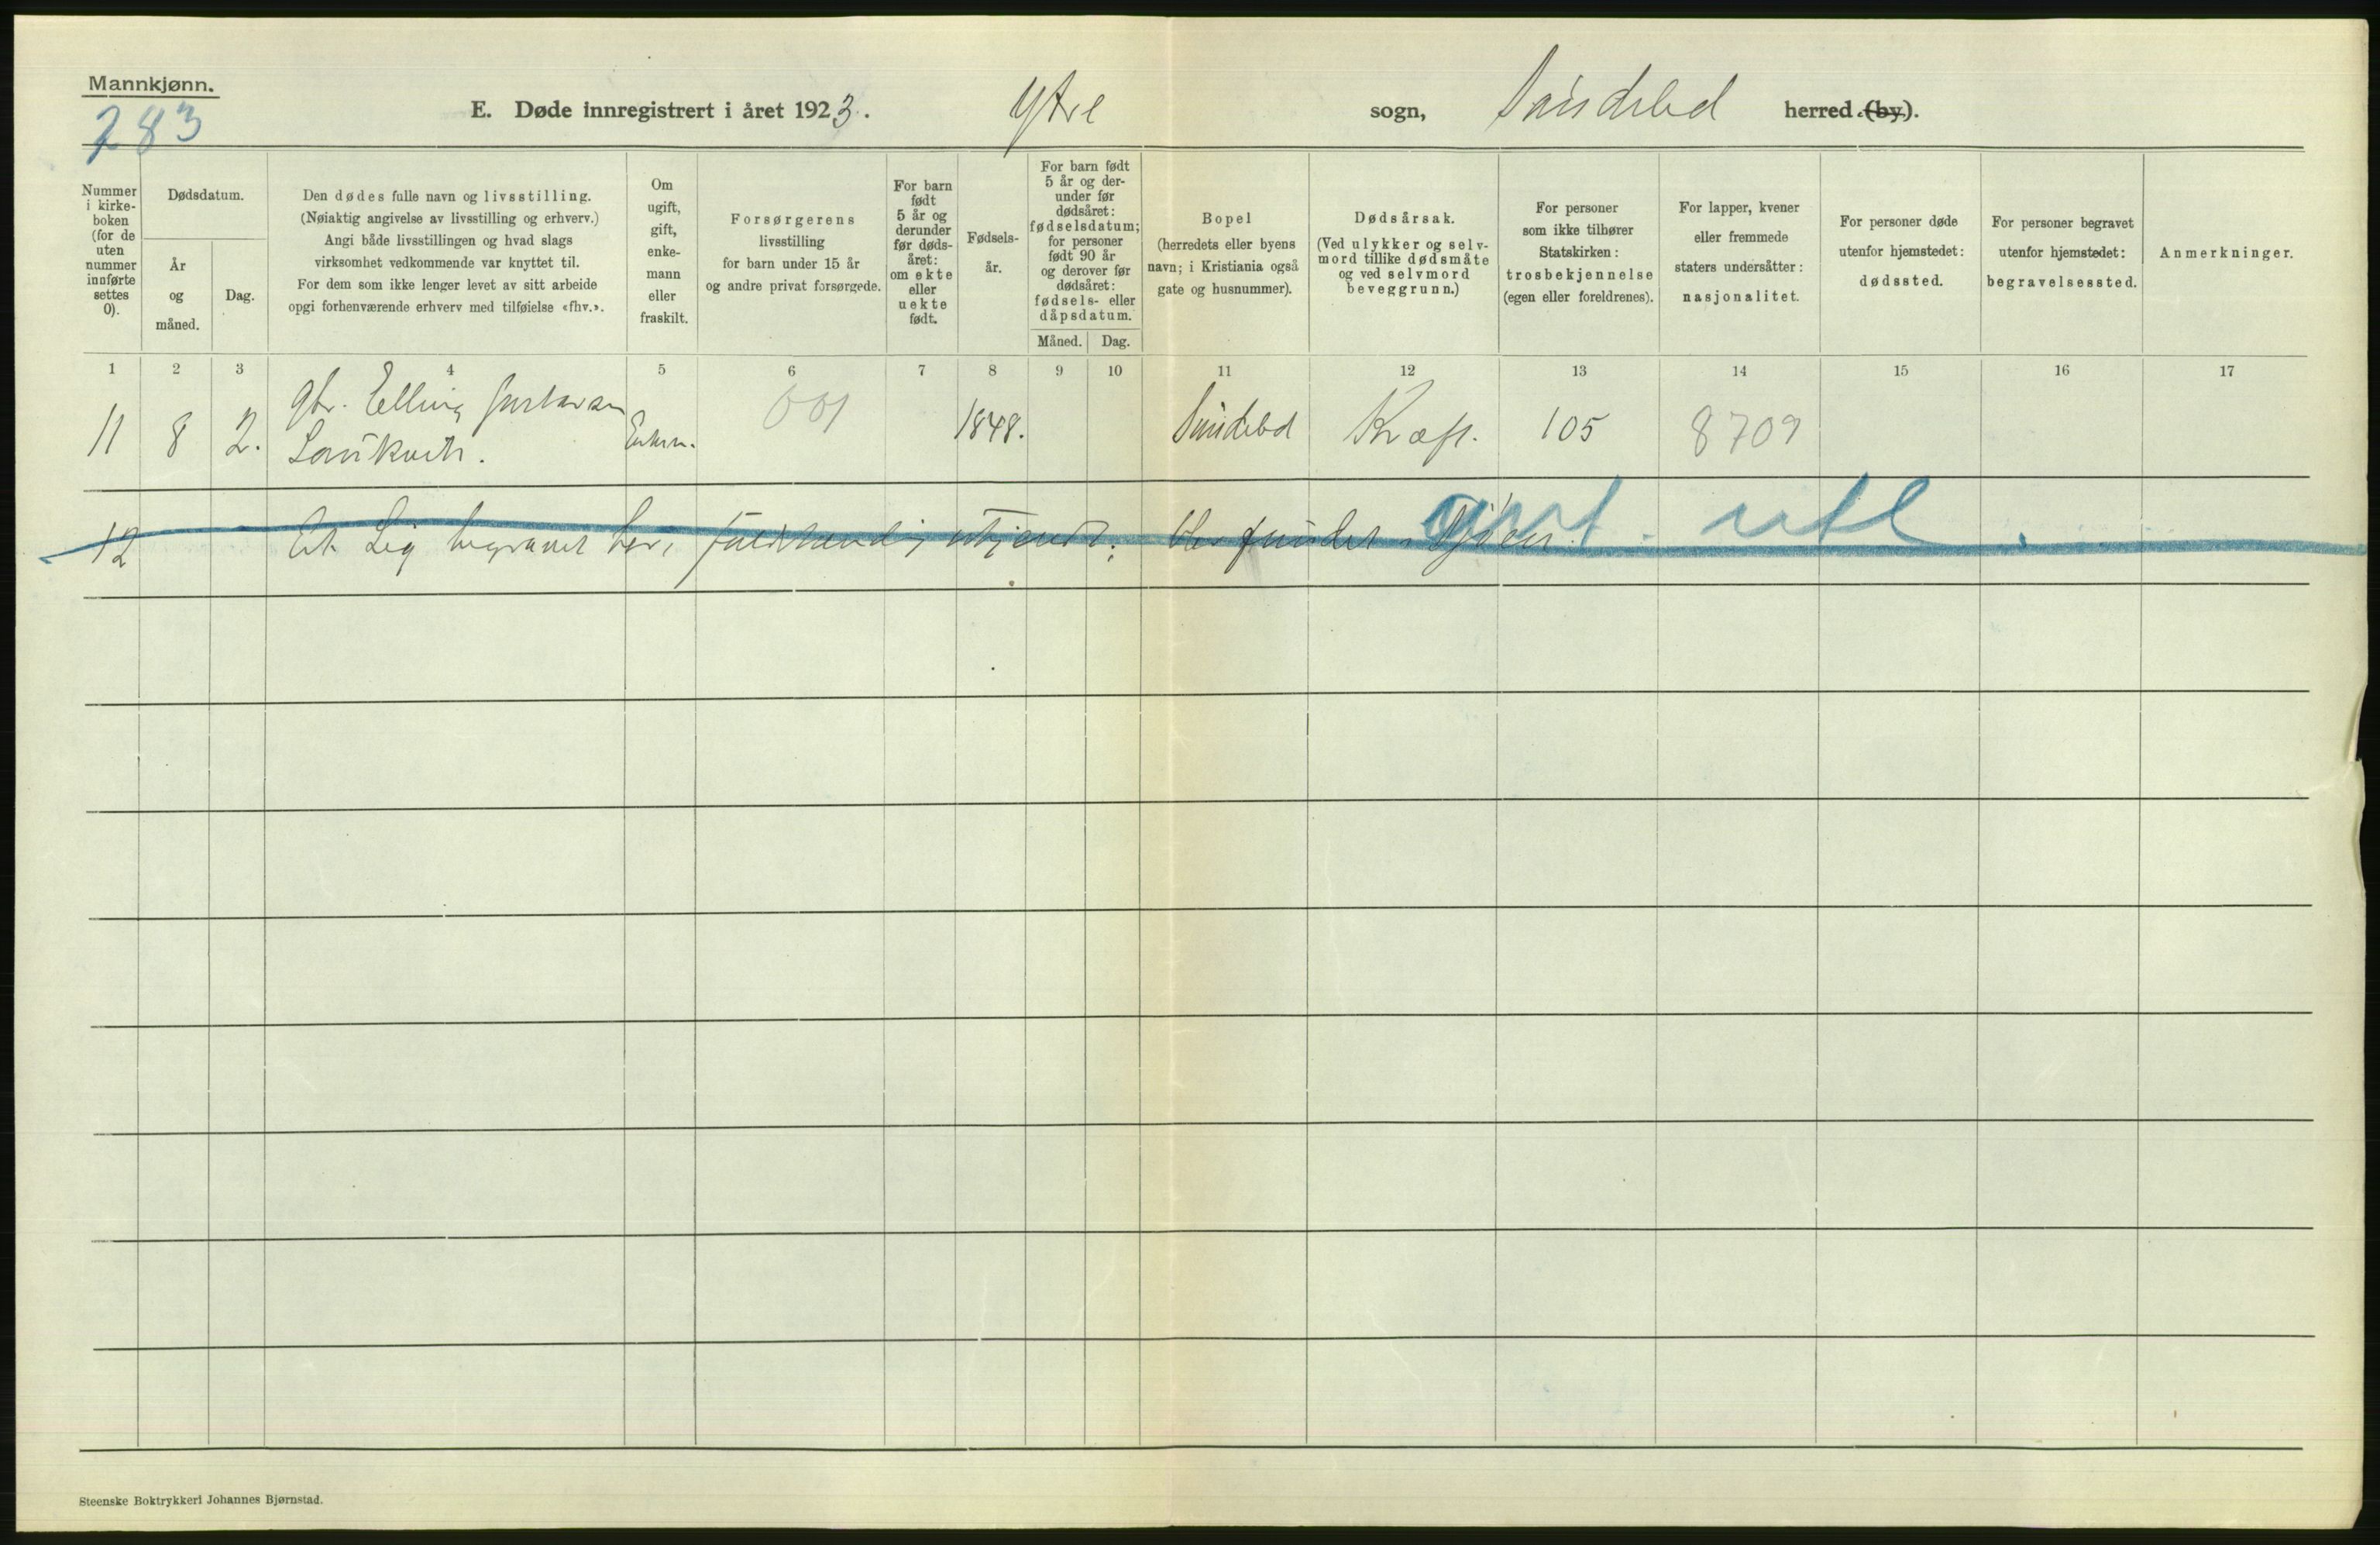 Mannkjønn.
283
E. Døde innregistrert i året 1923. Ytre sogn, herred (by).
Nummer
i kirke-
boken
(for de
uten
nummer
innførte
settes
0).
Dødsdatum.
År
og
måned.
Dag.
Den dødes fulle navn og livsstilling.
(Nøiaktig angivelse av livsstilling og erhverv.)
Angi både livsstillingen og hvad slags
virksomhet vedkommende var knyttet til.
For dem som ikke lenger levet av sitt arbeide
opgi forhenværende erhverv med tilføielse «fhv.».
Om
ugift,
gift,
enke-
mann
eller
fraskilt.
Forsørgerens
livsstilling
for barn under 15 år
og andre privat forsørgede.
For barn
født
5 år og
derunder
før døds-
året:
om ekte
eller
uekte
født.
Fødsels-
år.
For barn født
5 år og der-
under før
dødsåret:
fødselsdatum;
for personer
født 90 år
og derover før
dødsåret:
fødsels- eller
dåpsdatum.
Måned. Dag.
Bopel
(herredets eller byens
navn; i Kristiania også
gate og husnummer).
Dødsårsak.
(Ved ulykker og selv-
mord tillike dødsmåte
og ved selvmord
beveggrunn.)
For personer
som ikke tilhører
Statskirken:
trosbekjennelse
(egen eller foreldrenes).
For lapper, kvener
eller fremmede
staters undersåtter:
nasjonalitet.
For personer døde
utenfor hjemstedet:
dødssted.
For personer begravet
utenfor hjemstedet:
begravelsessted.
Anmerkninger.
1 2 3 4 5 6 7 8 9 10 11 12 13 14 15 16 17
Gbr. Elling Gustavsen
11 8 2. 001 1848. Kræft. 105 8709
12 Et Lig begravet her, fuldstændig ukjendt; blev fundet i
utl.
Steenske Boktrykkeri Johannes Bjørnstad.